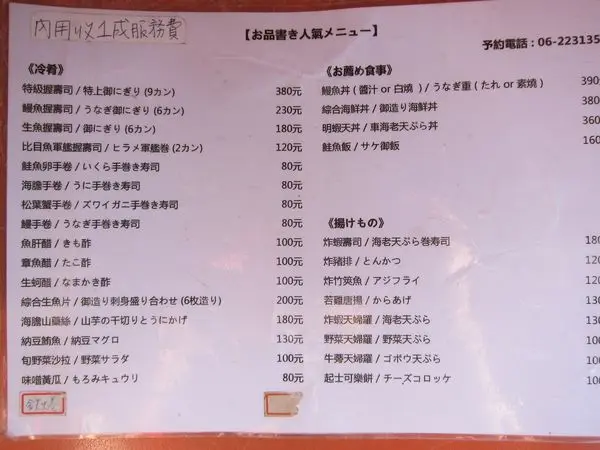 內用收1成服務費
【お品書き人氣メニュー】
予約電話：06-223135
《冷肴》
特級握壽司 / 特上御にぎり (9カン) 380元
鰻魚握壽司 / うなぎ御にぎり (6カン) 230元
生魚握壽司 / 御にぎり (6カン) 180元
比目魚軍艦握壽司 / ヒラメ軍艦巻 (2カン) 120元
鮭魚卵手卷 / いくら手巻き寿司 80元
海膽手卷 / うに手巻き寿司 80元
松葉蟹手卷 / ズワイガニ手巻き寿司 80元
鰻手卷 / うなぎ手巻き寿司 80元
魚肝醋 / きも酢 100元
章魚醋 / たこ酢 100元
生蚵醋 / なまかき酢 100元
綜合生魚片 / 御造り刺身盛り合わせ (6枚造り) 200元
海膽山藥絲 / 山芋の千切りとうにかげ 180元
納豆鮪魚 / 納豆マグロ 130元
旬野菜沙拉 / 野菜サラダ 100元
味噌黃瓜 / もろみキュウリ 80元
《お薦め食事》
鰻魚丼 ( 醬汁 or 白燒 ) / うなぎ重 ( たれ or 素燒 ) 390
綜合海鮮丼 / 御造り海鮮丼 380
明蝦天丼 / 車海老天ぷら丼 360
鮭魚飯 / サケ御飯 160
《揚げもの》
炸蝦壽司 / 海老天ぷら巻寿司 180
炸豬排 / とんかつ 120
炸竹筴魚 / アジフライ 120
若雞唐揚 / からあげ 130
炸蝦天婦羅 / 海老天ぷら 130
野菜天婦羅 / 野菜天ぷら 100
牛蒡天婦羅 / ゴボウ天ぷら 100
起士可樂餅 / チーズコロッケ 100